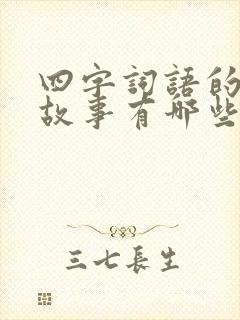 四字詞語的
故事有哪些
三七長生